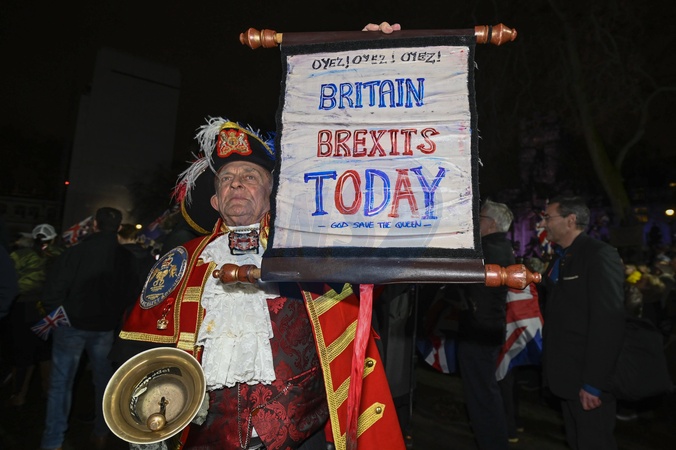 OYEZ! OYEZ! OYEZ!
BRITAIN
BREXITS
TODAY
- GOD SAVE THE QUEEN -